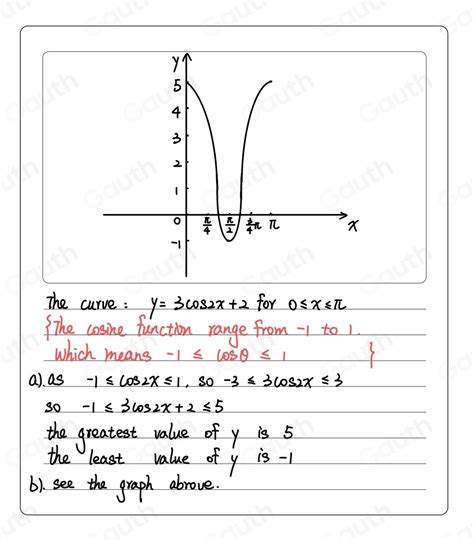 y
5
4
3
2
1
0 π/4 π/2 3/4π π x
-1
The curve : y = 3cos2x+2 for 0≤x≤π
{The cosine function range from -1 to 1.
which means -1 ≤ cosθ ≤ 1 }
a). as -1 ≤ cos2x ≤ 1, so -3 ≤ 3cos2x ≤ 3
so -1 ≤ 3cos2x+2 ≤ 5
the greatest value of y is 5
the least value of y is -1
b). see the graph abrove.
Gauth